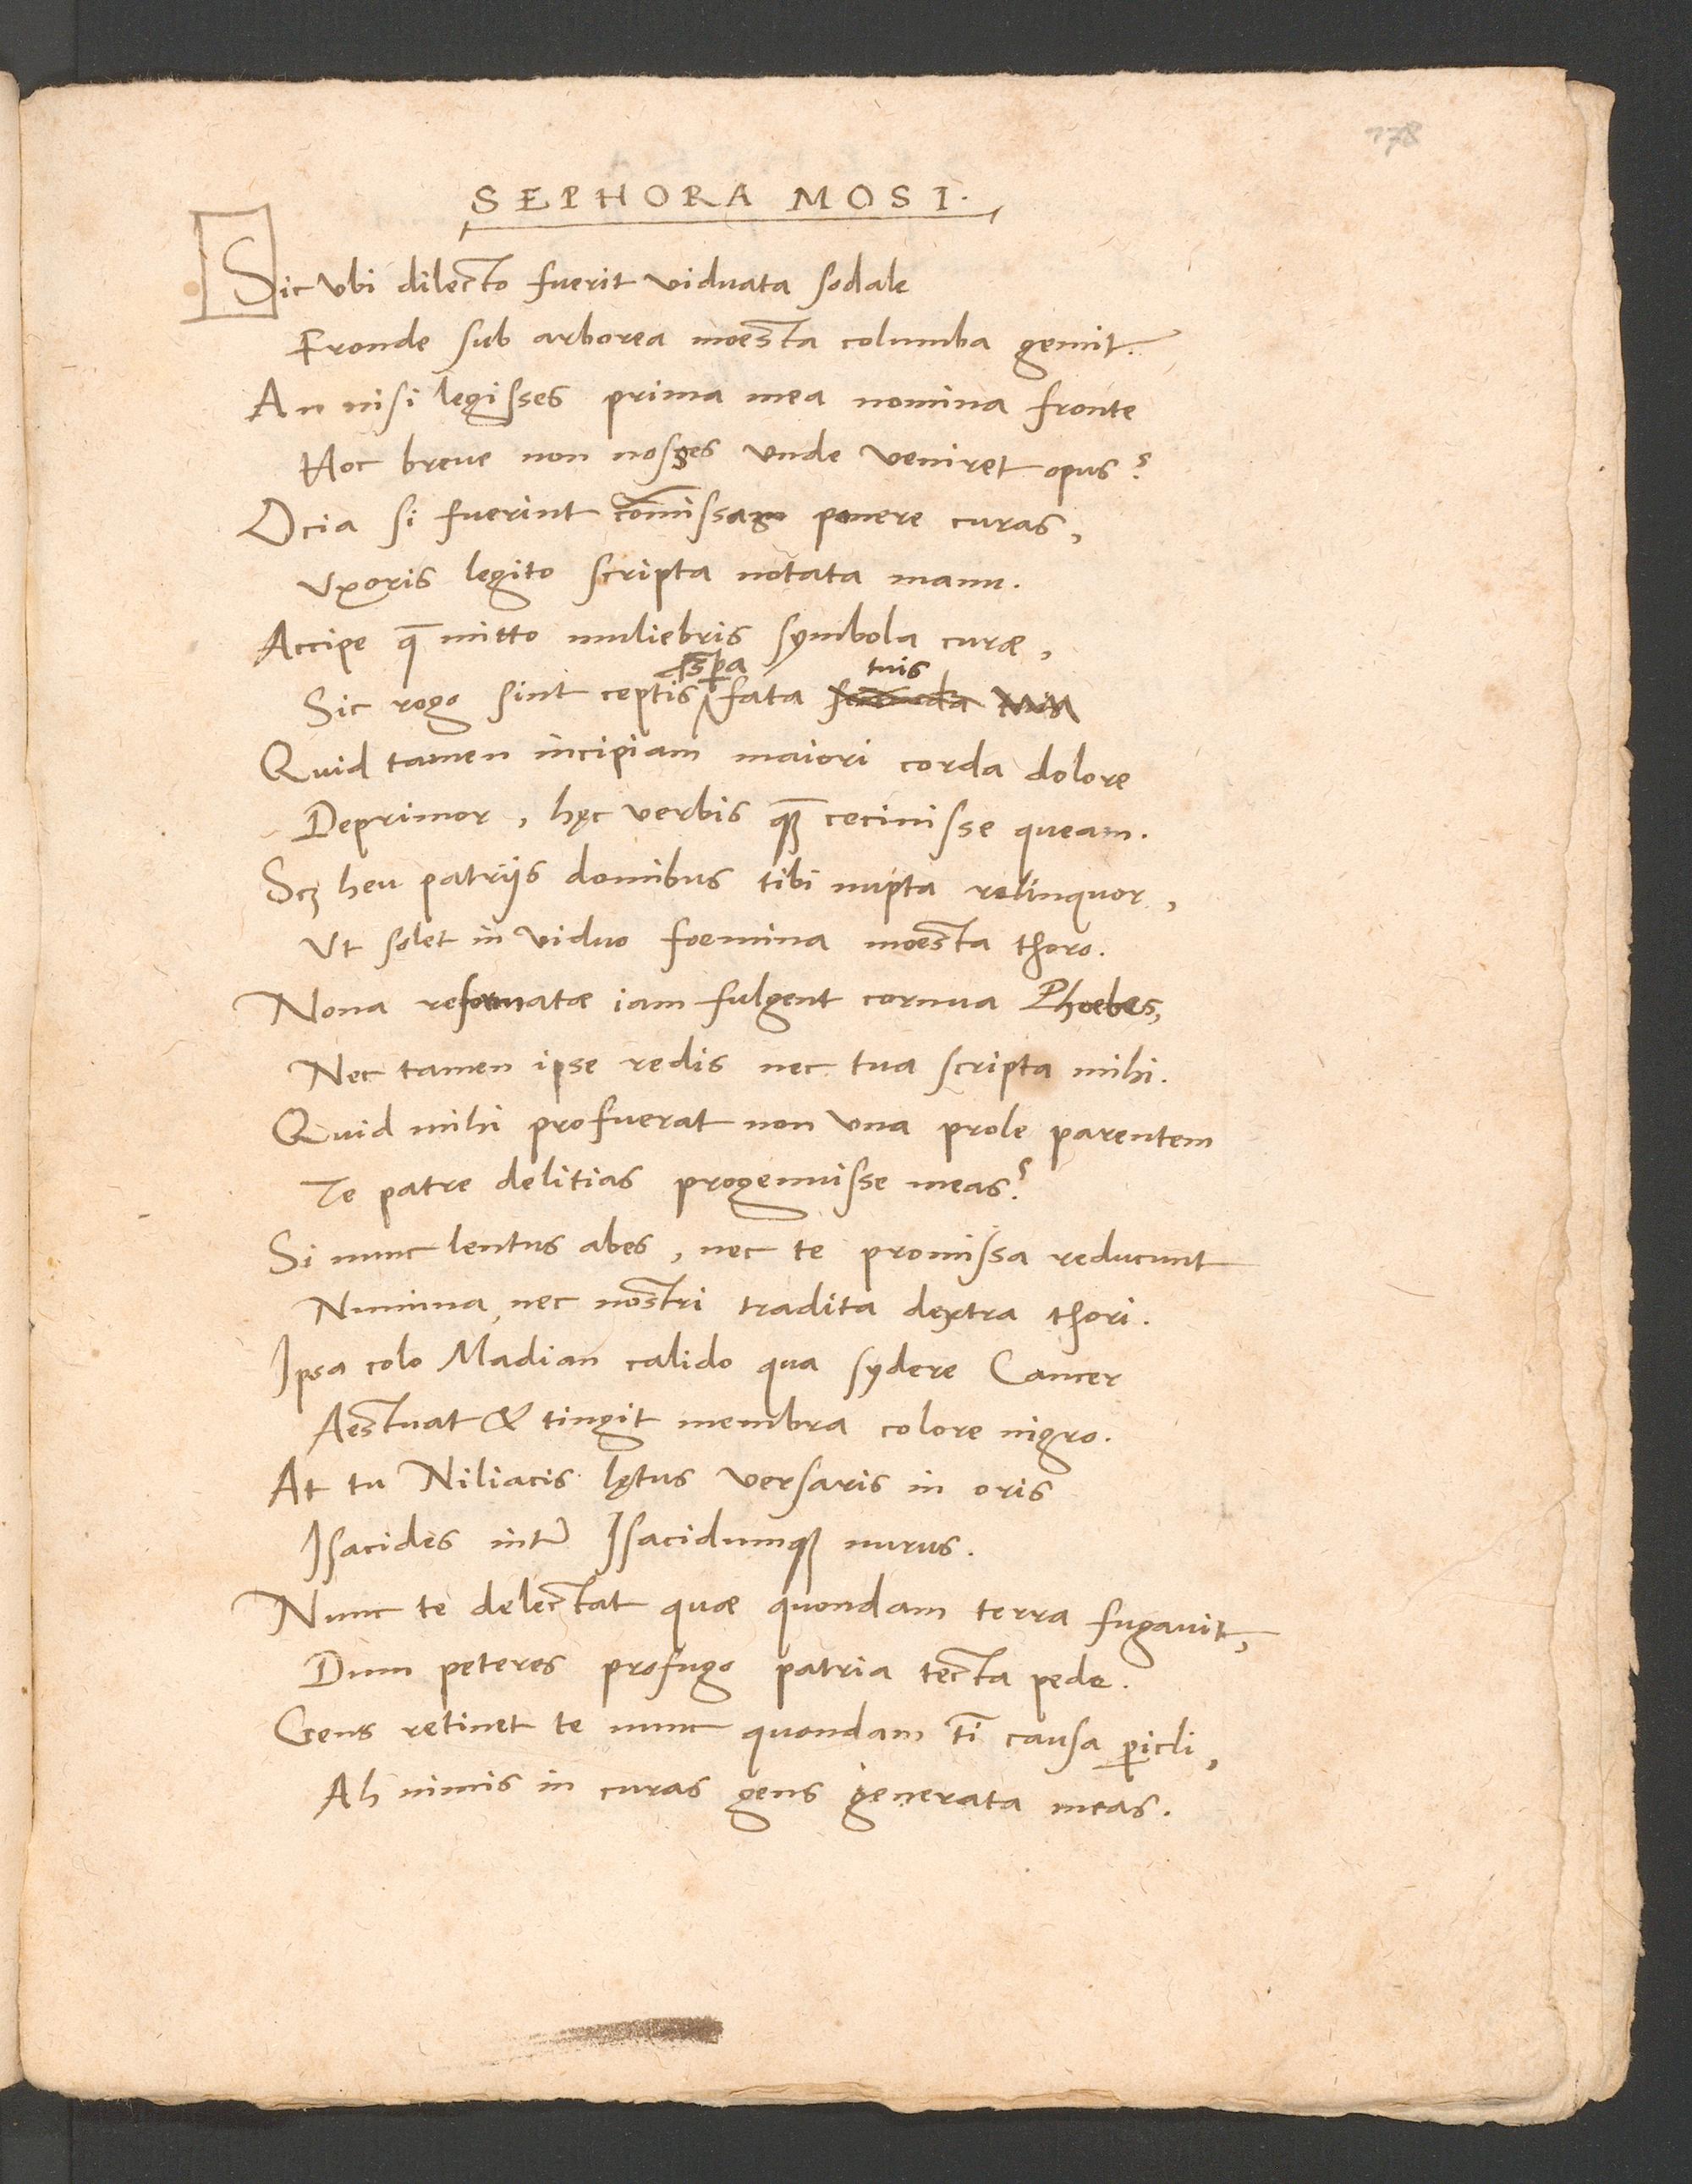 178
SEPHORA MOSI.
Sic ubi dilecto fuerit viduata sodale
Fronde sub arborea moesta columba gemit.
An nisi legisses prima mea nomina fronte
Hoc breve non nosses unde veniret opus?
Ocia si fuerint com̄issam ponere curas,
Uxoris legito scripta notata manu.
Accipe q̄ mitto muliebris symbola curæ,
ꝓspa tuis
Sic rogo sint ceptis fata secunda tuis
Quid tamen incipiam maiori corda dolore
Deprimor, hęc verbis quā cecinisse queam.
Scꝫ heu patrijs domibus tibi nupta relinquor,
Ut solet in viduo foemina moesta thoro.
Nona reformatæ iam fulgent cornua Phoebes,
Nec tamen ipse redis nec tua scripta mihi.
Quid mihi profuerat non una prole parentem
Te patre delitias progenuisse meas?
Si nunc lentus abes, nec te promissa reducunt
Numina, nec nostri tradita dextra thori.
Ipsa colo Madian calido qua sydere Cancer
Aestuat & tingit membra colore nigro.
At tu Niliacis lętus versaris in oris
Isacides inter Isacidumqꝫ nurus.
Nunc te delectat quæ quondam terra fugavit,
Dum peteres profugo patria tecta pede.
Gens retinet te nunc quondam ti causa ꝑicli,
Ah nimis in curas gens generata meas.